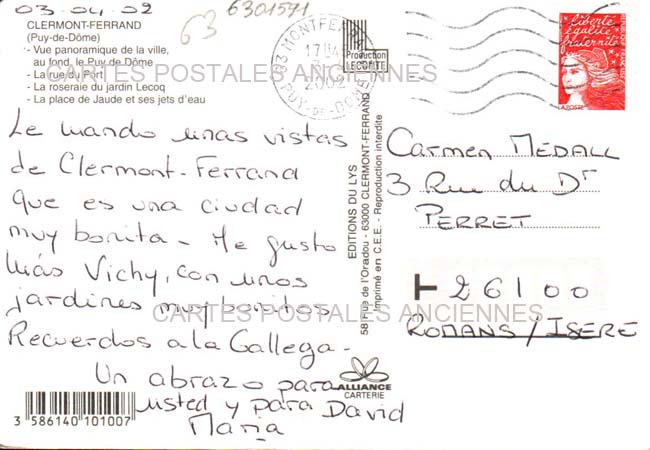 03.04.02
63
6301571
CLERMONT-FERRAND
(Puy-de-Dôme)
- Vue panoramique de la ville,
au fond, le Puy de Dôme
- La rue du Port
- La roseraie du jardin Lecoq
- La place de Jaude et ses jets d'eau
CARTES POSTALES ANCIENNES
Le mando unas vistas
de Clermont-Ferrand
que es una ciudad
muy bonita - Me gusto
más Vichy, con unos
jardines muy bonitos
CARTES POSTALES ANCIENNES
Recuerdos a la Gallega -
Un abrazo para
usted y para David
Maria
3 586140 101007
Production
LECONTE
EDITIONS DU LYS
58 Rue de l'Oradou - 63000 CLERMONT-FERRAND
Imprimé en C.E.E. - Reproduction interdite
ALLIANCE
CARTERIE
63 MONTFERRAND
2002
PUY-DE-DOME
Liberté
égalité
fraternité
LA POSTE
Carmen MEDALL
3 Rue du Dr
PERRET
26100
ROMANS / ISERE